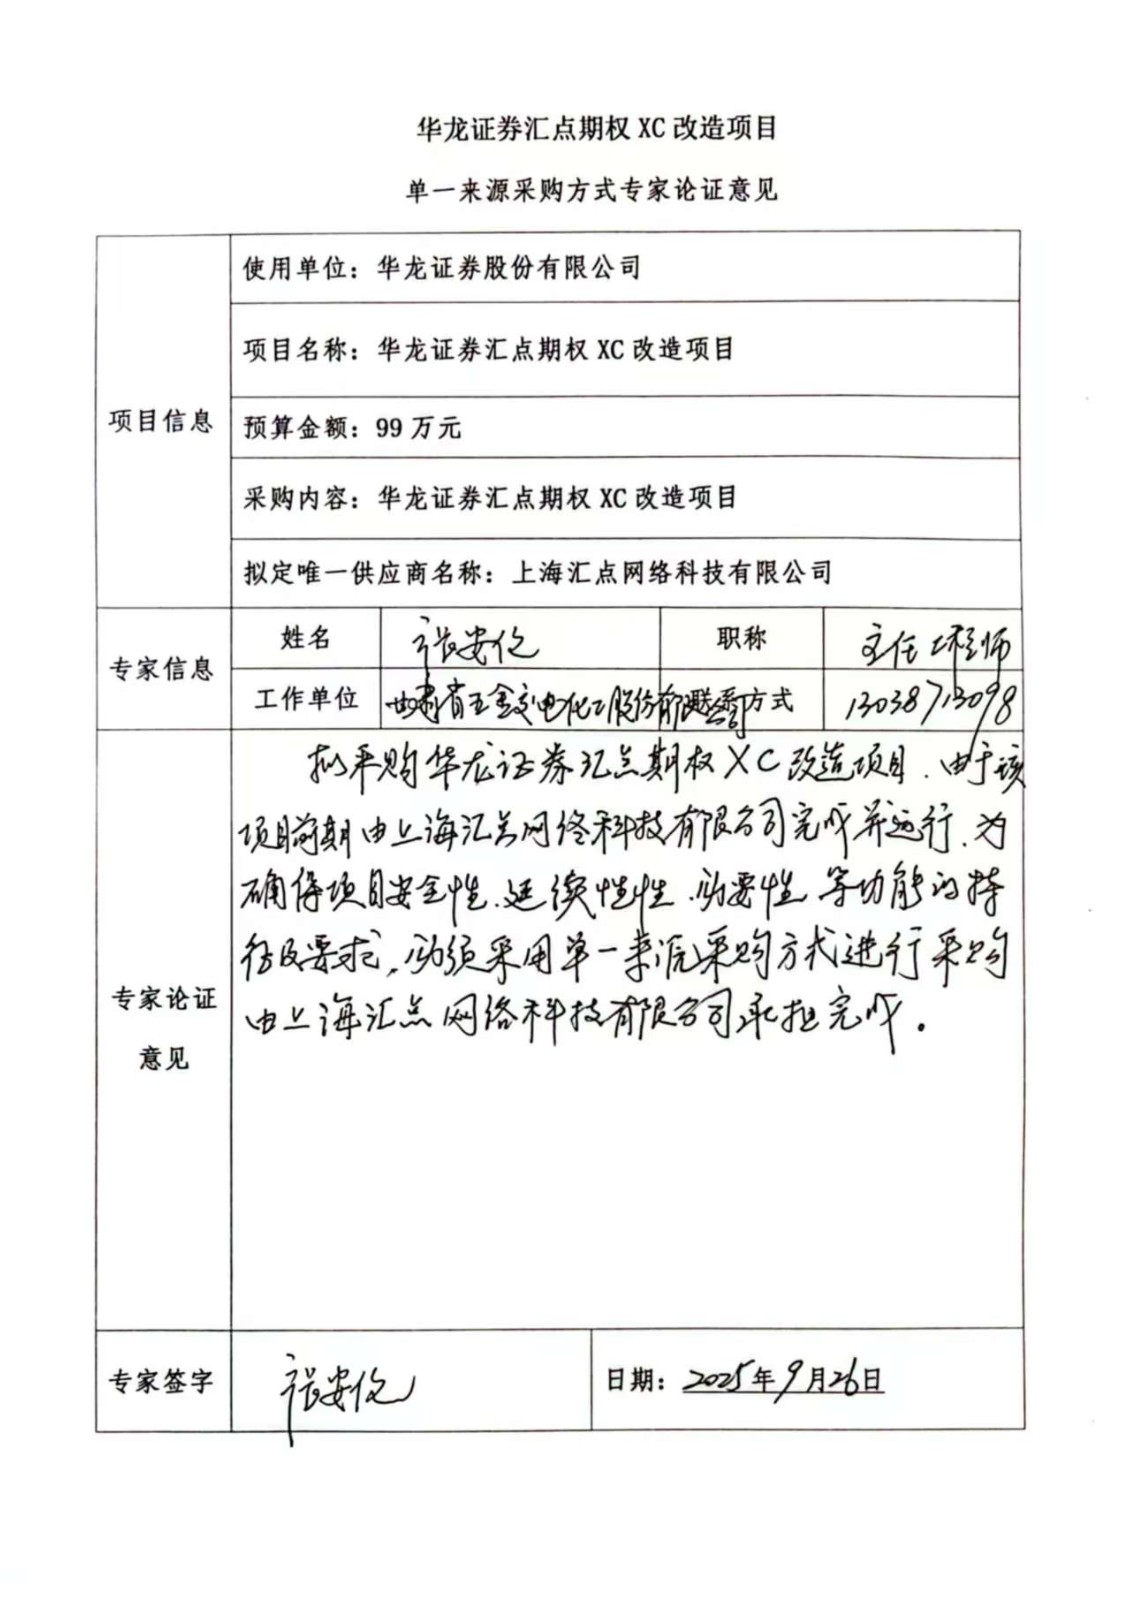 华龙证券汇点期权 XC 改造项目
单一来源采购方式专家论证意见
项目信息
使用单位：华龙证券股份有限公司
项目名称：华龙证券汇点期权 XC 改造项目
预算金额：99 万元
采购内容：华龙证券汇点期权 XC 改造项目
拟定唯一供应商名称：上海汇点网络科技有限公司
专家信息
姓名
张安
职称
主任工程师
工作单位
甘肃省五金交电化工股份有限公司
联系方式
13038713098
专家论证
意见
拟采购华龙证券汇点期权XC改造项目，由于该
项目前期由上海汇点网络科技有限公司完成并运行，为
确保项目安全性、延续性性、必要性等功能的持
及要求，必须采用单一来源采购方式进行采购
由上海汇点网络科技有限公司承担完成。
专家签字
张安
日期：2025年9月26日